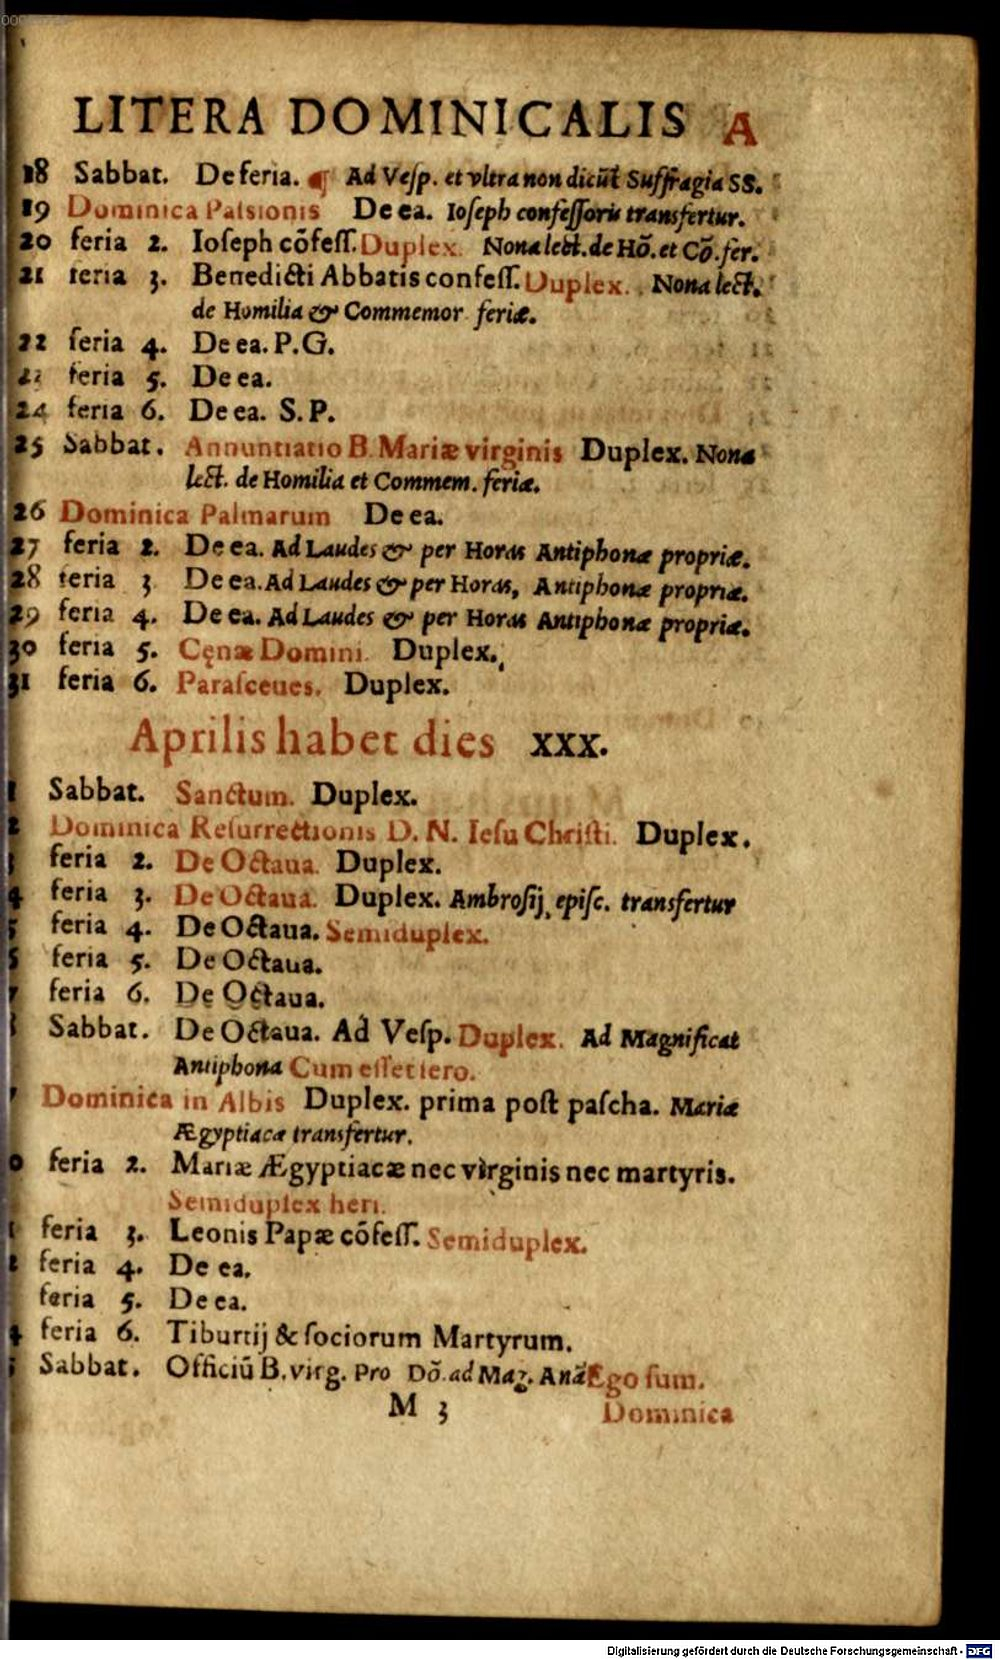 LITERA DOMINICALIS A
18 Sabbat. De feria. ¶ Ad Veſp. et vltra non dicūt Suffragia SS.
19 Dominica Paſsionis De ea. Ioſeph confeſſoris transfertur.
20 feria 2. Ioſeph cōfeſſ. Duplex. Nona lect. de Hō. et Cō. fer.
21 feria 3. Benedicti Abbatis confeſſ. Duplex. Nona lect.
de Homilia & Commemor feriæ.
22 feria 4. De ea. P. G.
23 feria 5. De ea.
24 feria 6. De ea. S. P.
25 Sabbat. Annuntiatio B. Mariæ virginis Duplex. Nona
lect. de Homilia et Commem. feriæ.
26 Dominica Palmarum De ea.
27 feria 2. De ea. Ad Laudes & per Horas Antiphonæ propriæ.
28 feria 3 De ea. Ad Laudes & per Horas, Antiphonæ propriæ.
29 feria 4. De ea. Ad Laudes & per Horas Antiphonæ propriæ.
30 feria 5. Cęnæ Domini. Duplex.
31 feria 6. Paraſceues. Duplex.
Aprilis habet dies XXX.
1 Sabbat. Sanctum. Duplex.
2 Dominica Reſurrectionis D. N. Ieſu Chriſti. Duplex.
3 feria 2. De Octaua. Duplex.
4 feria 3. De Octaua. Duplex. Ambroſij epiſc. transfertur
5 feria 4. De Octaua. Semiduplex.
6 feria 5. De Octaua.
7 feria 6. De Octaua.
Sabbat. De Octaua. Ad Veſp. Duplex. Ad Magnificat
Antiphona Cum eſſet ſero.
Dominica in Albis Duplex. prima poſt paſcha. Mariæ
Ægyptiacæ transfertur.
0 feria 2. Mariæ Ægyptiacæ nec virginis nec martyris.
Semiduplex heri.
1 feria 3. Leonis Papæ cōfeſſ. Semiduplex.
2 feria 4. De ea.
feria 5. De ea.
4 feria 6. Tiburtij & ſociorum Martyrum.
5 Sabbat. Officiū B. virg. Pro Dō. ad Mag. Anā Ego ſum.
M 3 Dominica
Digitalisierung gefördert durch die Deutsche Forschungsgemeinschaft - DFG